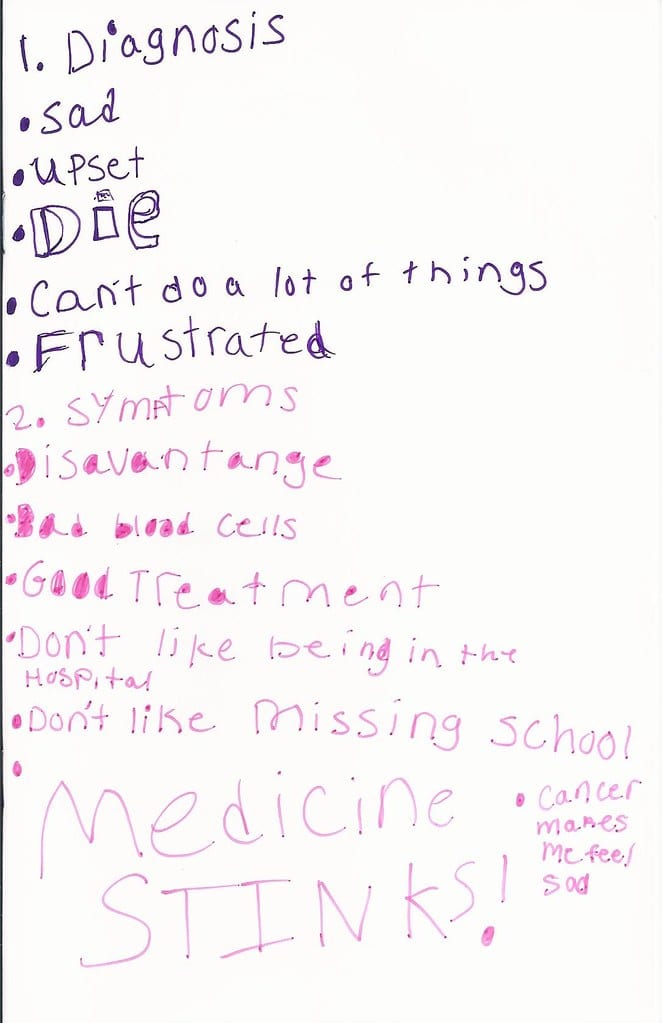 1. Diagnosis
• sad
• upset
• Die
• Can't do a lot of things
• Frustrated
2. symptoms
• Disavantange
• Bad blood cells
• Good Treatment
• Don't like being in the
Hospital
• Don't like missing school
•
Medicine
STINKS!
• cancer
makes
me feel
sad